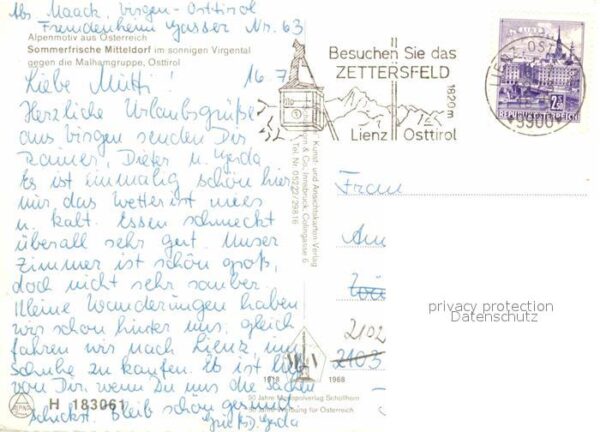 Abs. Maack, Virgen-Osttirol
Fremdenheim Gasser Nr. 63
Alpenmotiv aus Österreich
Sommerfrische Mitteldorf im sonnigen Virgental
gegen die Malhamgruppe, Osttirol
16.7
Liebe Mutti!
Herzliche Urlaubsgrüße
aus Virgen senden Dir
Rainer, Dieter u. Gerda
Es ist einmalig schön hier
nur, das Wetter ist mies
u. kalt. Essen schmeckt
überall sehr gut. Unser
Zimmer ist schön groß,
doch nicht sehr sauber.
Kleine Wanderungen haben
wir schon hinter uns, gleich
fahren wir nach Lienz, um
Schuhe zu kaufen. Es ist lieb
von Dir, wenn Du uns die Sachen
schickst. Bleib schön gesund
Gruß Gerda
H 183061
Besuchen Sie das
ZETTERSFELD
1820 m
Lienz Osttirol
LIENZ, OST
9900
REPUBLIK ÖSTERREICH
Kunst- und Ansichtskarten-Verlag
& Co., Innsbruck, Colingasse 6
Tel. Nr. 05222/29816
Frau
Am
2102
2103
1918 1968
50 Jahre Monopolverlag Schöllhorn
50 Jahre Werbung für Österreich
privacy protection
Datenschutz